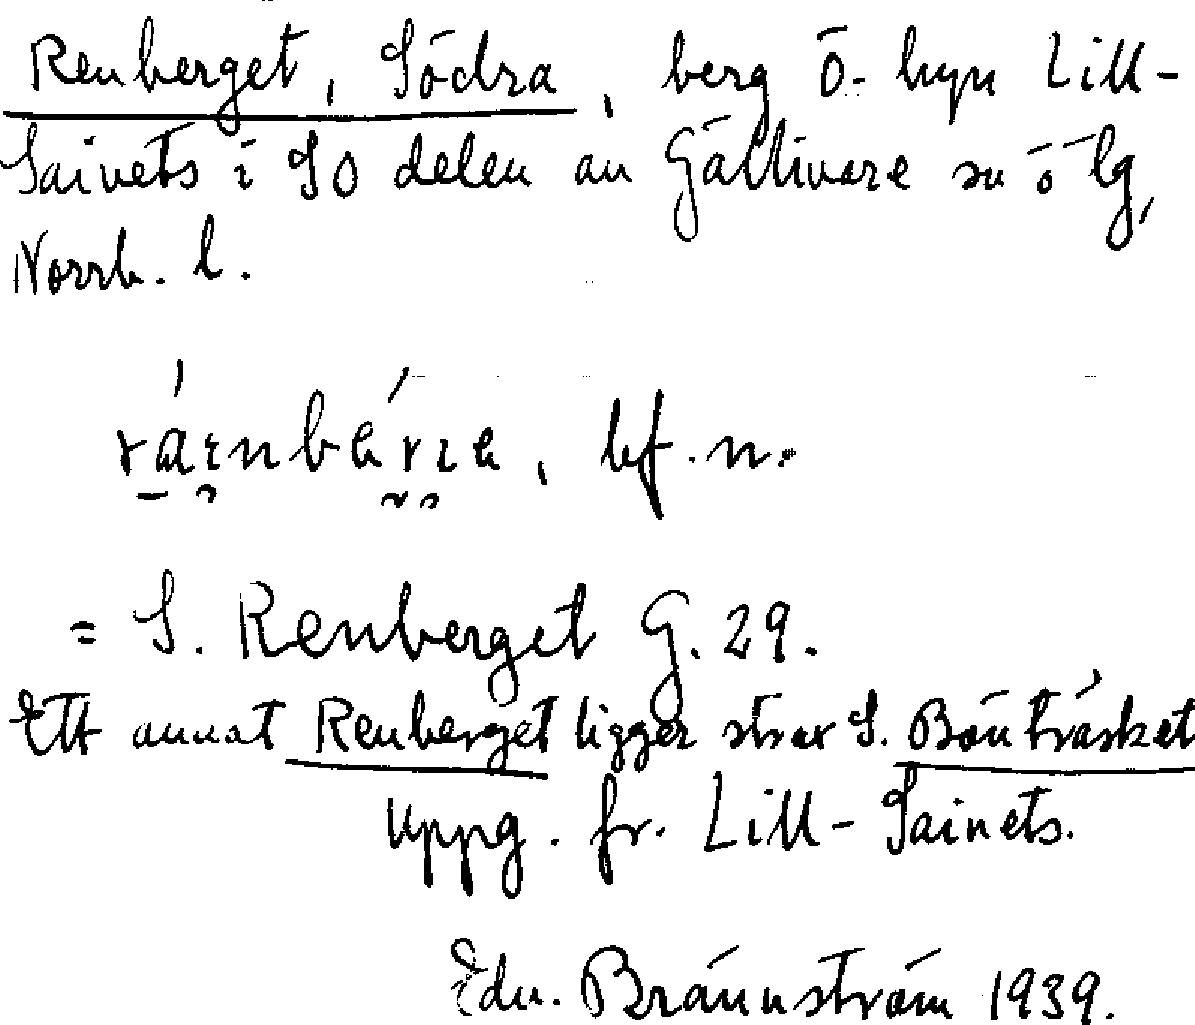 Renberget, Södra, berg ö. byn Lill-
Saivets i SO delen av Gällivare sn o lg,
Norrb. l.
bf. n.
= S. Renberget G. 29.
Ett annat Renberget ligger strax S. Bönträsket
Uppg. fr. Lill-Saivets.
Edv. Brännström 1939.